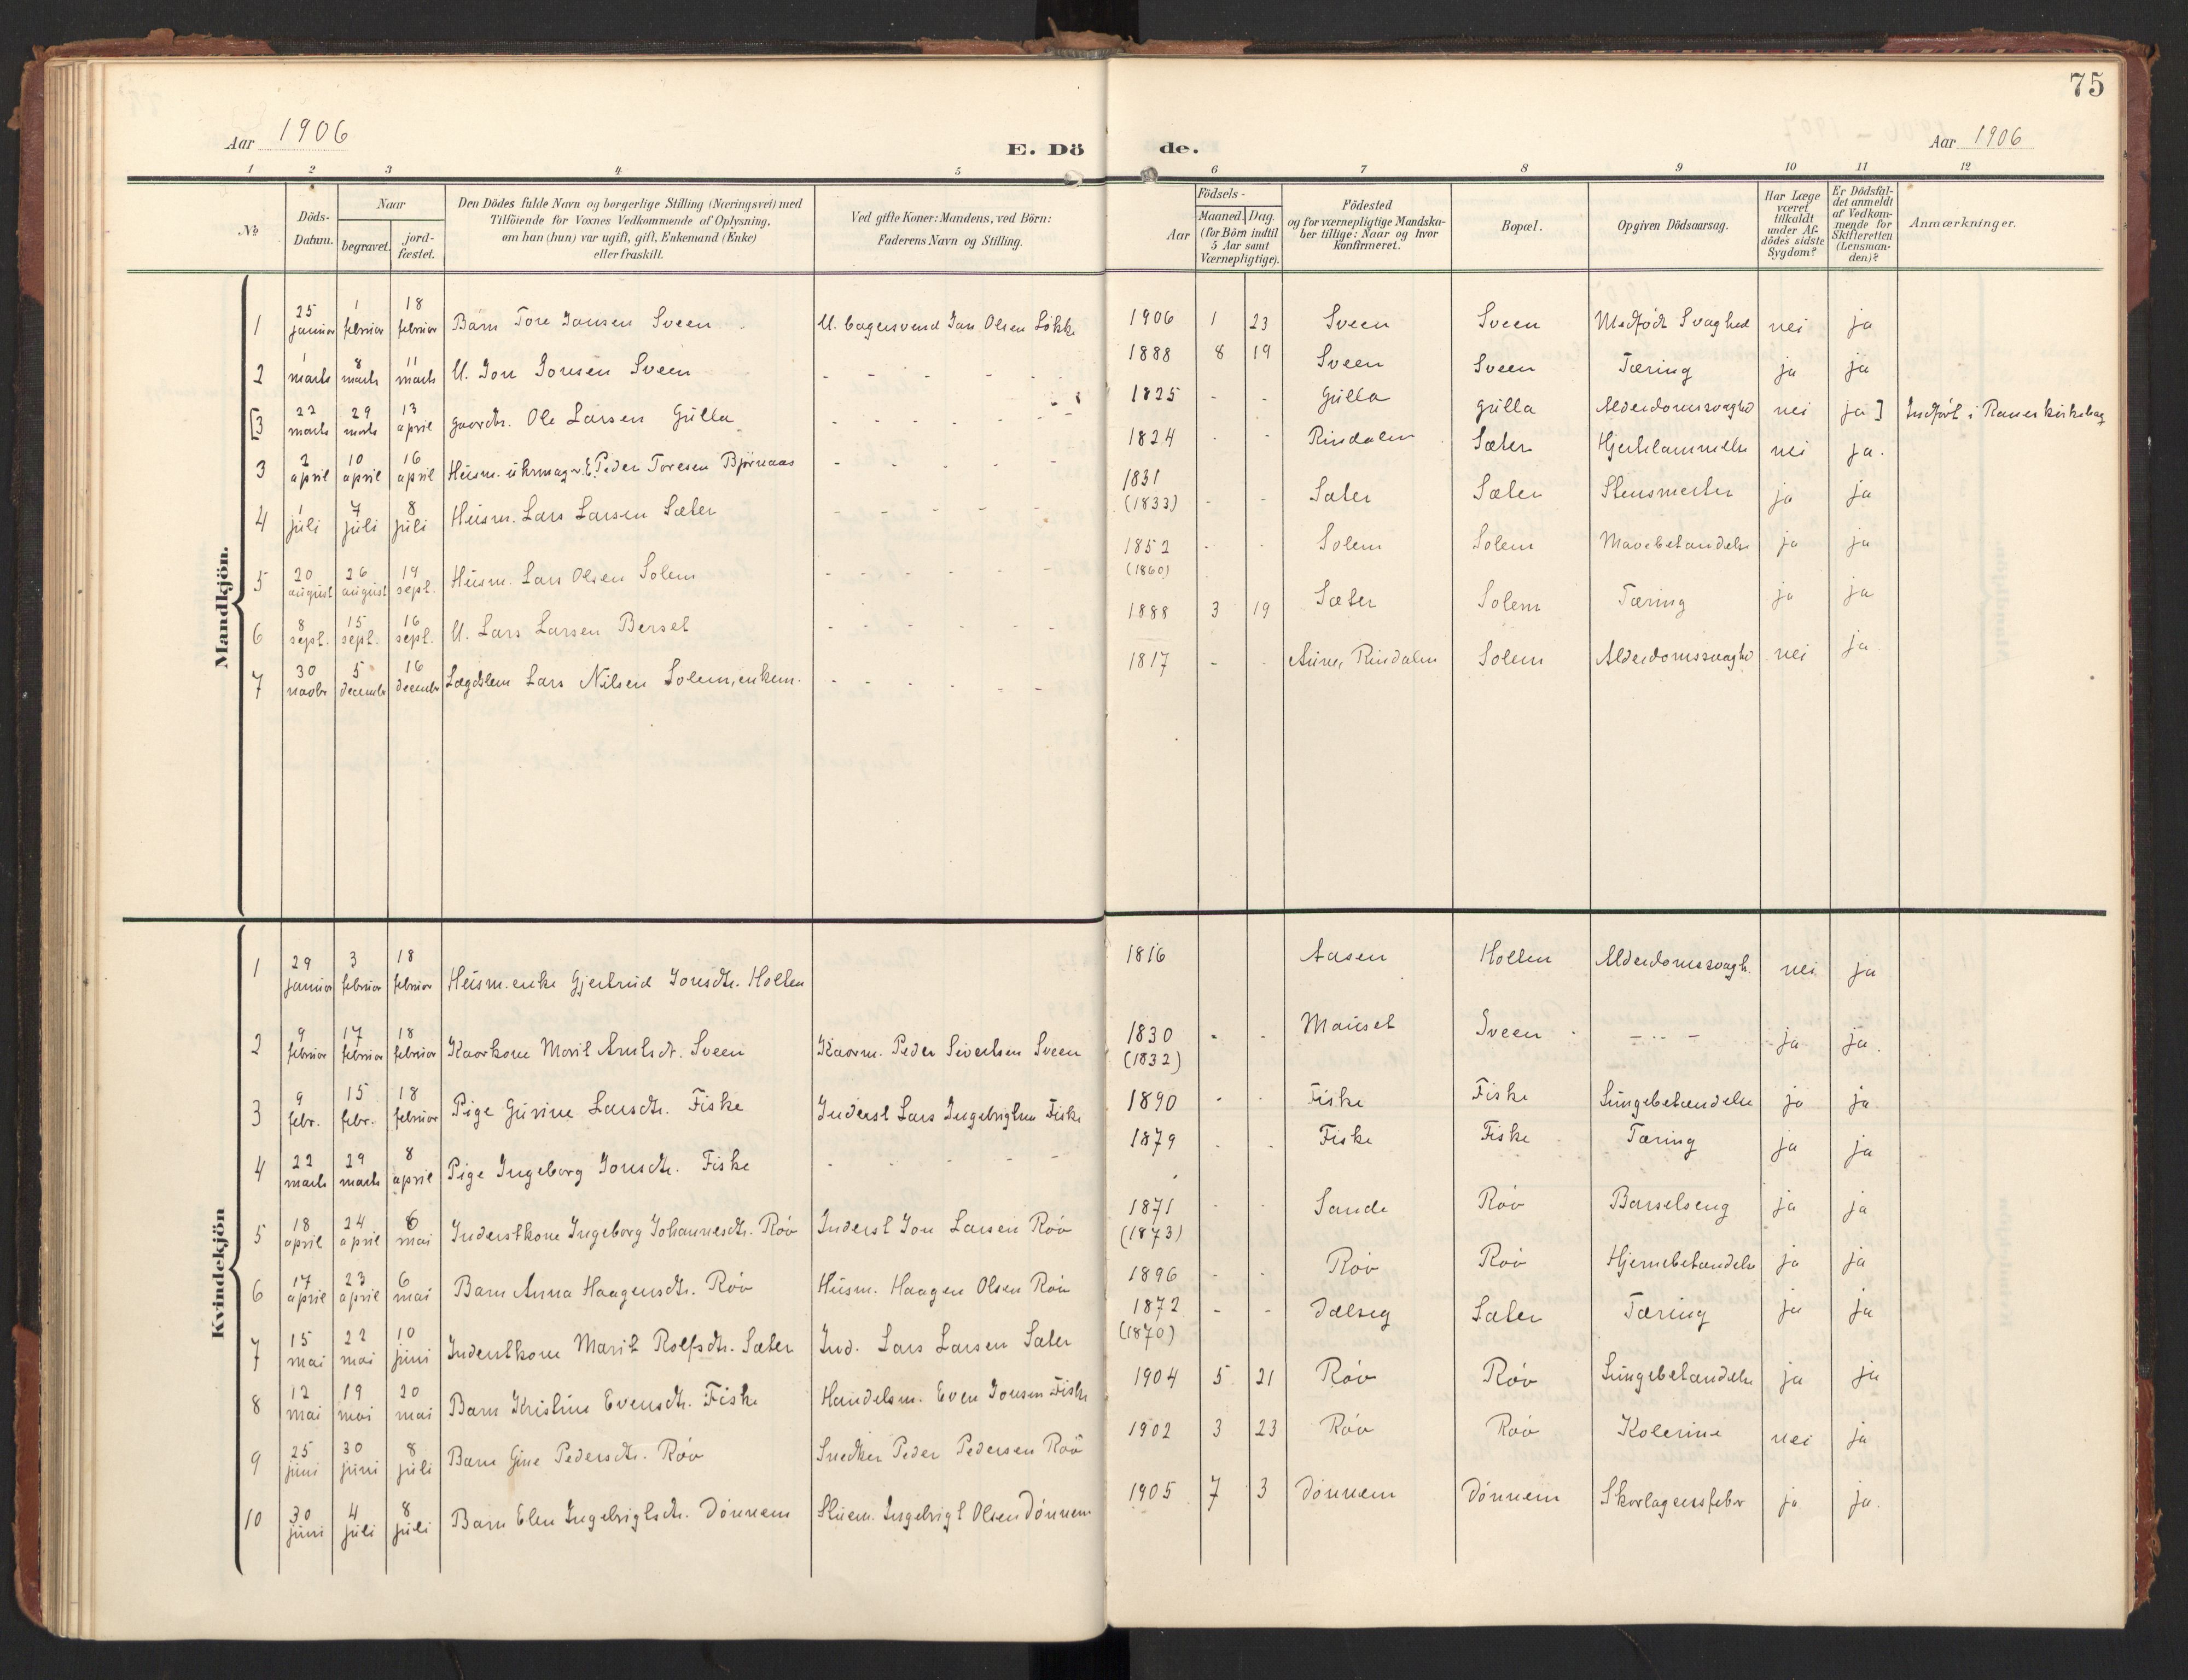 75
Aar 1906
E. Dö de.
Aar 1906
1 2 3 4 5 6 7 8 9 10 11 12
№
Döds-
Datum.
Naar
begravet.
jord-
fæstet.
Den Dödes fulde Navn og borgerlige Stilling (Næringsvei) med
Tilföiende for Voxnes Vedkommende af Oplysning.
om han (hun) var ugift, gift, Enkemand (Enke)
eller fraskilt.
Ved gifte Koner: Mandens, ved Börn:
Faderens Navn og Stilling.
Födsels-
Aar
Maaned. Dag.
(for Börn indtil
5 Aar samt
Værnepligtige).
Födested
og for værnepligtige Mandska-
ber tillige: Naar og hvor
konfirmeret.
Bopæl.
Opgiven Dödsaarsag.
Har Læge
været
tilkaldt
under Af-
dödes sidste
Sygdom?
Er Dödsfal-
det anmeldt
af Vedkom-
mende for
Skifteretten
(Lensman-
den)?
Anmærkninger.
Mandkjön.
1 25 januar 1 februar 18 februar Barn Tore Jonsen Sveen U. bagersvend Jon Olsen Løkke 1906 1 23 Sveen Sveen Medfødt Svaghed nei ja
2 1 marts 8 marts 11 marts U. Jon Jonsen Sveen - - - - - 1888 8 19 Sveen Sveen Tæring ja ja
[3 22 marts 29 marts 13 april gaardbr. Ole Larsen Gulla - - - - - 1825 - - Gulla Gulla Alderdomssvaghd nei ja] Indført i Ranes kirkebog
3 2 april 10 april 16 april Husm. uhrmager E. Peder Toresen Bjørnaas - - - - - 1824 - - Rindalen Sæter Hjertelammelse nei ja.
4 1 juli 7 juli 8 juli Husm. Lars Larsen Sæter - - - - - 1831 (1833) - - Sæter Sæter Stensmerter ja ja
5 20 august 26 august 19 sept. Husm. Lars Olsen Solem - - - - - - 1852 (1860) - - Solem Solem Mavebetændelse ja ja
6 8 sept. 15 sept. 16 sept. U. Lars Larsen Berset - - - - - - 1888 3 19 Sæter Solem Tæring ja ja
7 30 novbr 5 decembr 16 decembr Lægdslem Lars Nilsen Solem, enkem. - - - - - - 1817 - - Aune, Rindalen Solem Alderdomssvaghd nei ja
Kvindekjön
1 29 januar 3 februar 18 februar Husm. enke Gjertrud Jonsdtr. Holten 1816 Aasen Holten Alderdomssvagh. nei ja
2 9 februar 17 februar 18 februar Kaarkone Marit Arntsdt. Sveen Kaarm. Peder Sivertsen Sveen 1830 (1832) - - Mauset Sveen - „ - ja ja.
3 9 febr. 15 febr. 18 februar Pige Gurine Larsdtr. Fiske Inderst Lars Ingebrigtsen Fiske 1890 - - Fiske Fiske Lungebetændelse ja ja
4 22 marts 29 marts 8 april Pige Ingeborg Jonsdtr. Fiske - - - - - 1879 - - Fiske Fiske Tæring ja ja
5 18 april 24 april 6 mai Inderstkone Ingeborg Johannesdtr. Røv Inderst Jon Larsen Røv 1871 (1873) - - Sande Røv Barselseng ja ja
6 17 april 23 april 6 mai Barn Anna Haagensdtr. Røv Husm. Haagen Olsen Røv 1896 - - Røv Røv Hjernebetændelse ja ja
7 15 mai 22 mai 10 juni Inderstkone Marit Rolfsdtr. Sæter Ind. Lars Larsen Sæter 1872 (1870) - - Dalseg Sæter Tæring ja ja
8 12 mai 19 mai 20 mai Barn Kristine Evensdtr. Fiske Handelsm. Even Jonsen Fiske 1904 5 21 Røv Røv Lungebetændelse ja ja
9 25 juni 30 juni 8 juli Barn Gine Pedersdtr. Røv Snedker Peder Pedersen Røv 1902 3 23 Røv Røv Kolerine nei ja
10 30 juni 4 juli 8 juli Barn Elen Ingebrigtsdtr. Dønnem Stuem. Ingebrigt Olsen Dønnem 1905 7 3 Dønnem Dønnem Skarlagensfeber ja ja.